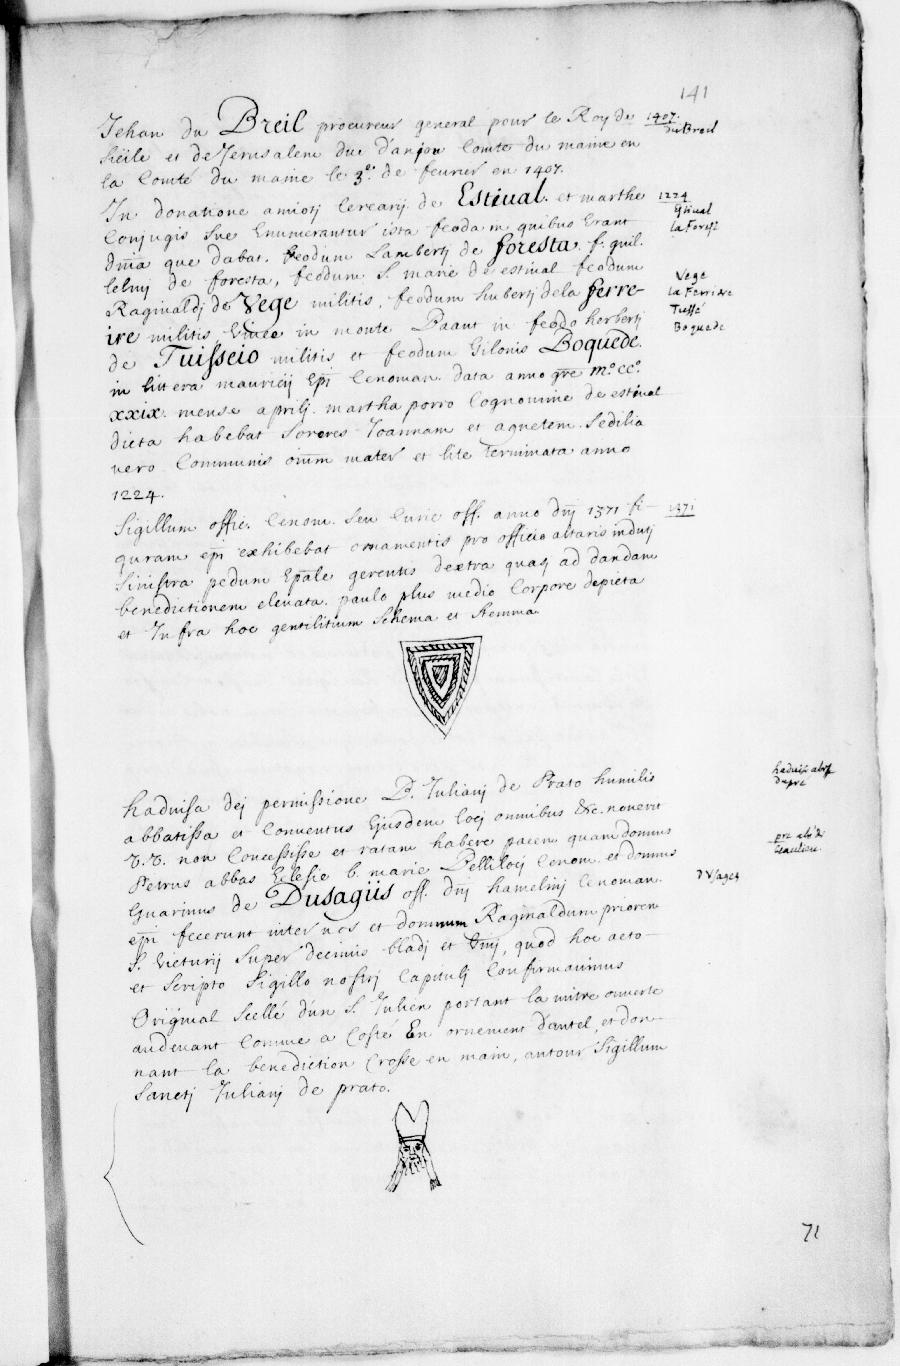 141
Jehan du Breil procureur general pour le Roy de
Sicile et de Jerusalem duc d'anjou Comte du maine en
la Comté du maine le 3e. de feurier en 1407.
1407.
du Breil
In donatione amiotj Cercarij de Estiual. et marthe
Conjugis sue Enumerantur ista feoda in quibus Erant
dnia que dabat. feodum Lambertj de foresta f. guil.
lelmj de foresta, feodum S. marie de estiual feodum
Raginaldj de Vege militis, feodum hubertj de la ferre-
ire militis in monte Baant in feodo herbertj
de Tuisseio militis et feodum Gilonis Boquede.
in littera mauricij Epi Cenoman. data anno gre m.° cc.°
xxix. mense aprilj. martha porro Cognomine de estiual
dicta habebat Sorores Joannam et agnetem. Sedilia
vero Communis oium mater et lite terminata anno
1224.
1224
Estiual
la Forest
Vege
la Ferriere
Tussé
Boquede
Sigillum offic. Cenom. seu Curie off. anno dnj 1371 fi-
guram epi exhibebat ornamentis pro officio altaris indutj
sinistra pedum Epale gerentis dextra quasj ad dandam
benedictionem eleuata. paulo plus medio Corpore depicta
et Infra hoc gentilitium Schema et Stemma.
1371
haduisa dej permissione B. Julianj de Prato humilis
abbatissa et Conuentus Ejusdem locj omnibus &c. nouerit
V.V. non Concessisse et ratam habere pacem quam domnus
Petrus abbas Eclesie b. marie Bellilocj Cenom. et domnus
Guarinus de Dusagiis off. dnj hamelinj Cenoman.
epi fecerunt inter nos et domnum Raginaldum priorem
S. Victurij super decimis bladj et Vinj, quod hoc acto
et scripto Sigillo nostrj Capitulj Confirmauimus
Original Scellé d'un S. Julien portant la mitre ouuerte
audeuant Comme a Costé En ornement d'autel, et don-
nant la benediction Crosse en main, autour Sigillum
Sanctj Julianj de prato.
haduise
dupré
Beaulieu.
d'Vsages
71